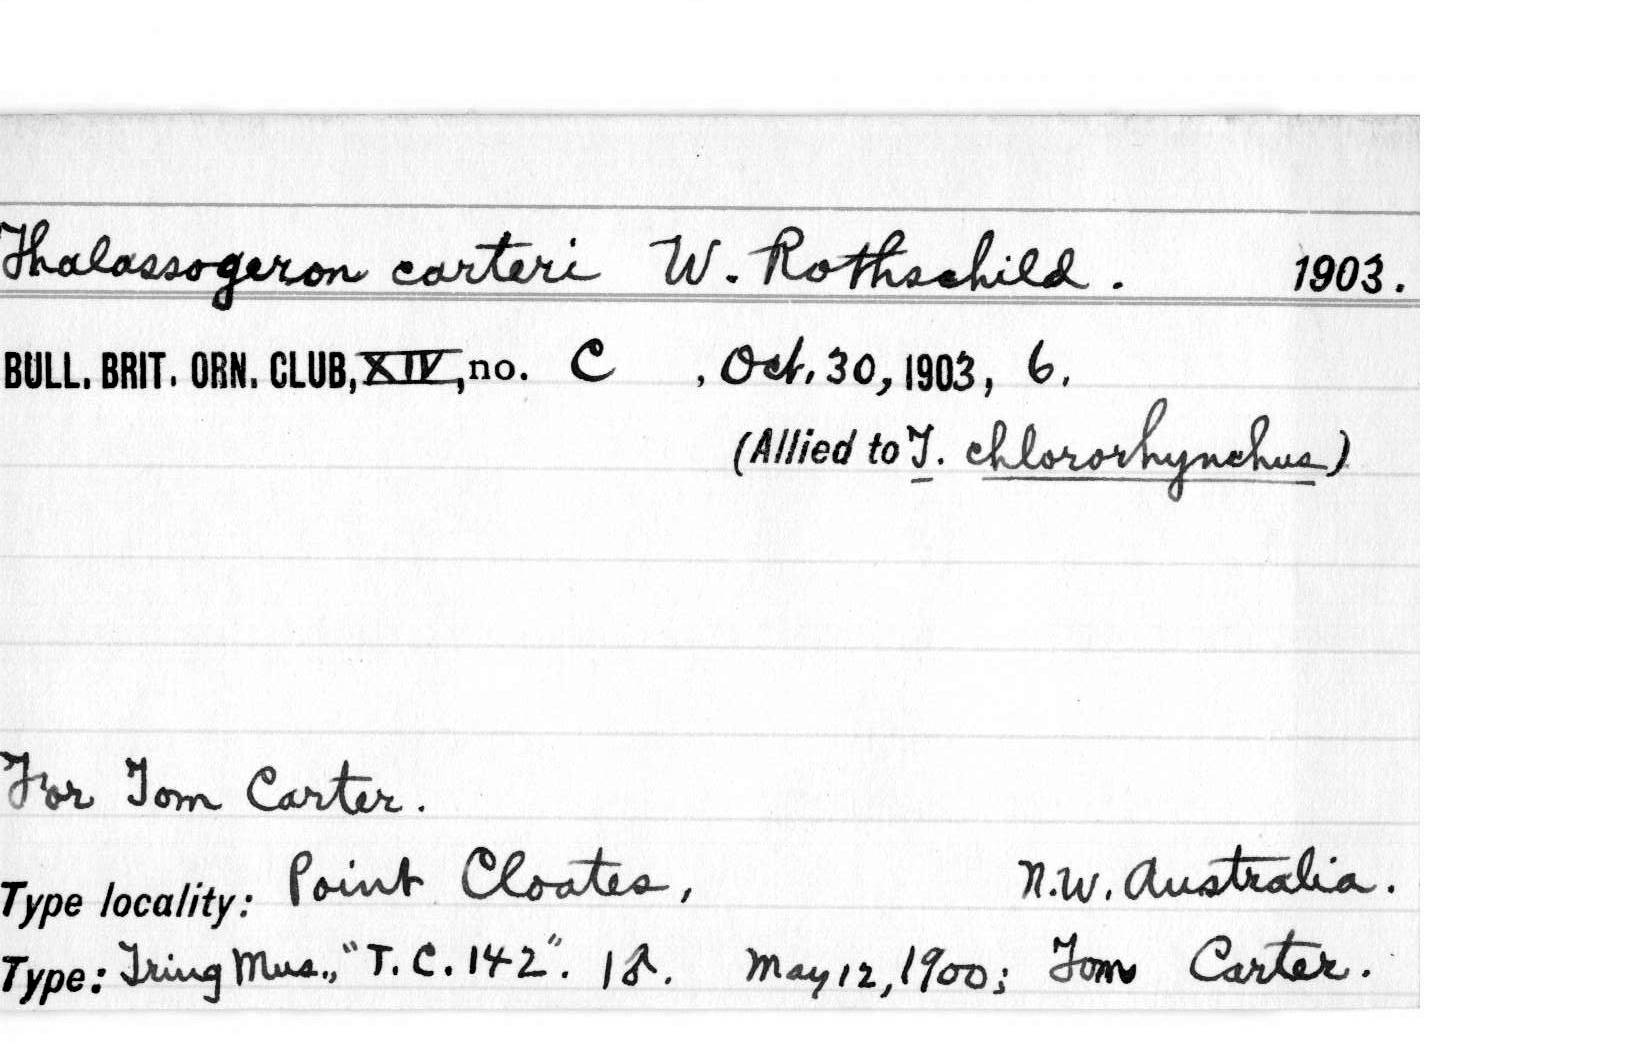 Thalassogeron carteri W. Rothschild. 1903.
BULL. BRIT. ORN. CLUB, XIV, no. C , Oct. 30, 1903, 6.
(Allied to T. chlororhynchus)
For Tom Carter.
Type locality: Point Cloates, N.W. Australia.
Type: Tring Mus., "T.C. 142". 1♂. May 12, 1900; Tom Carter.